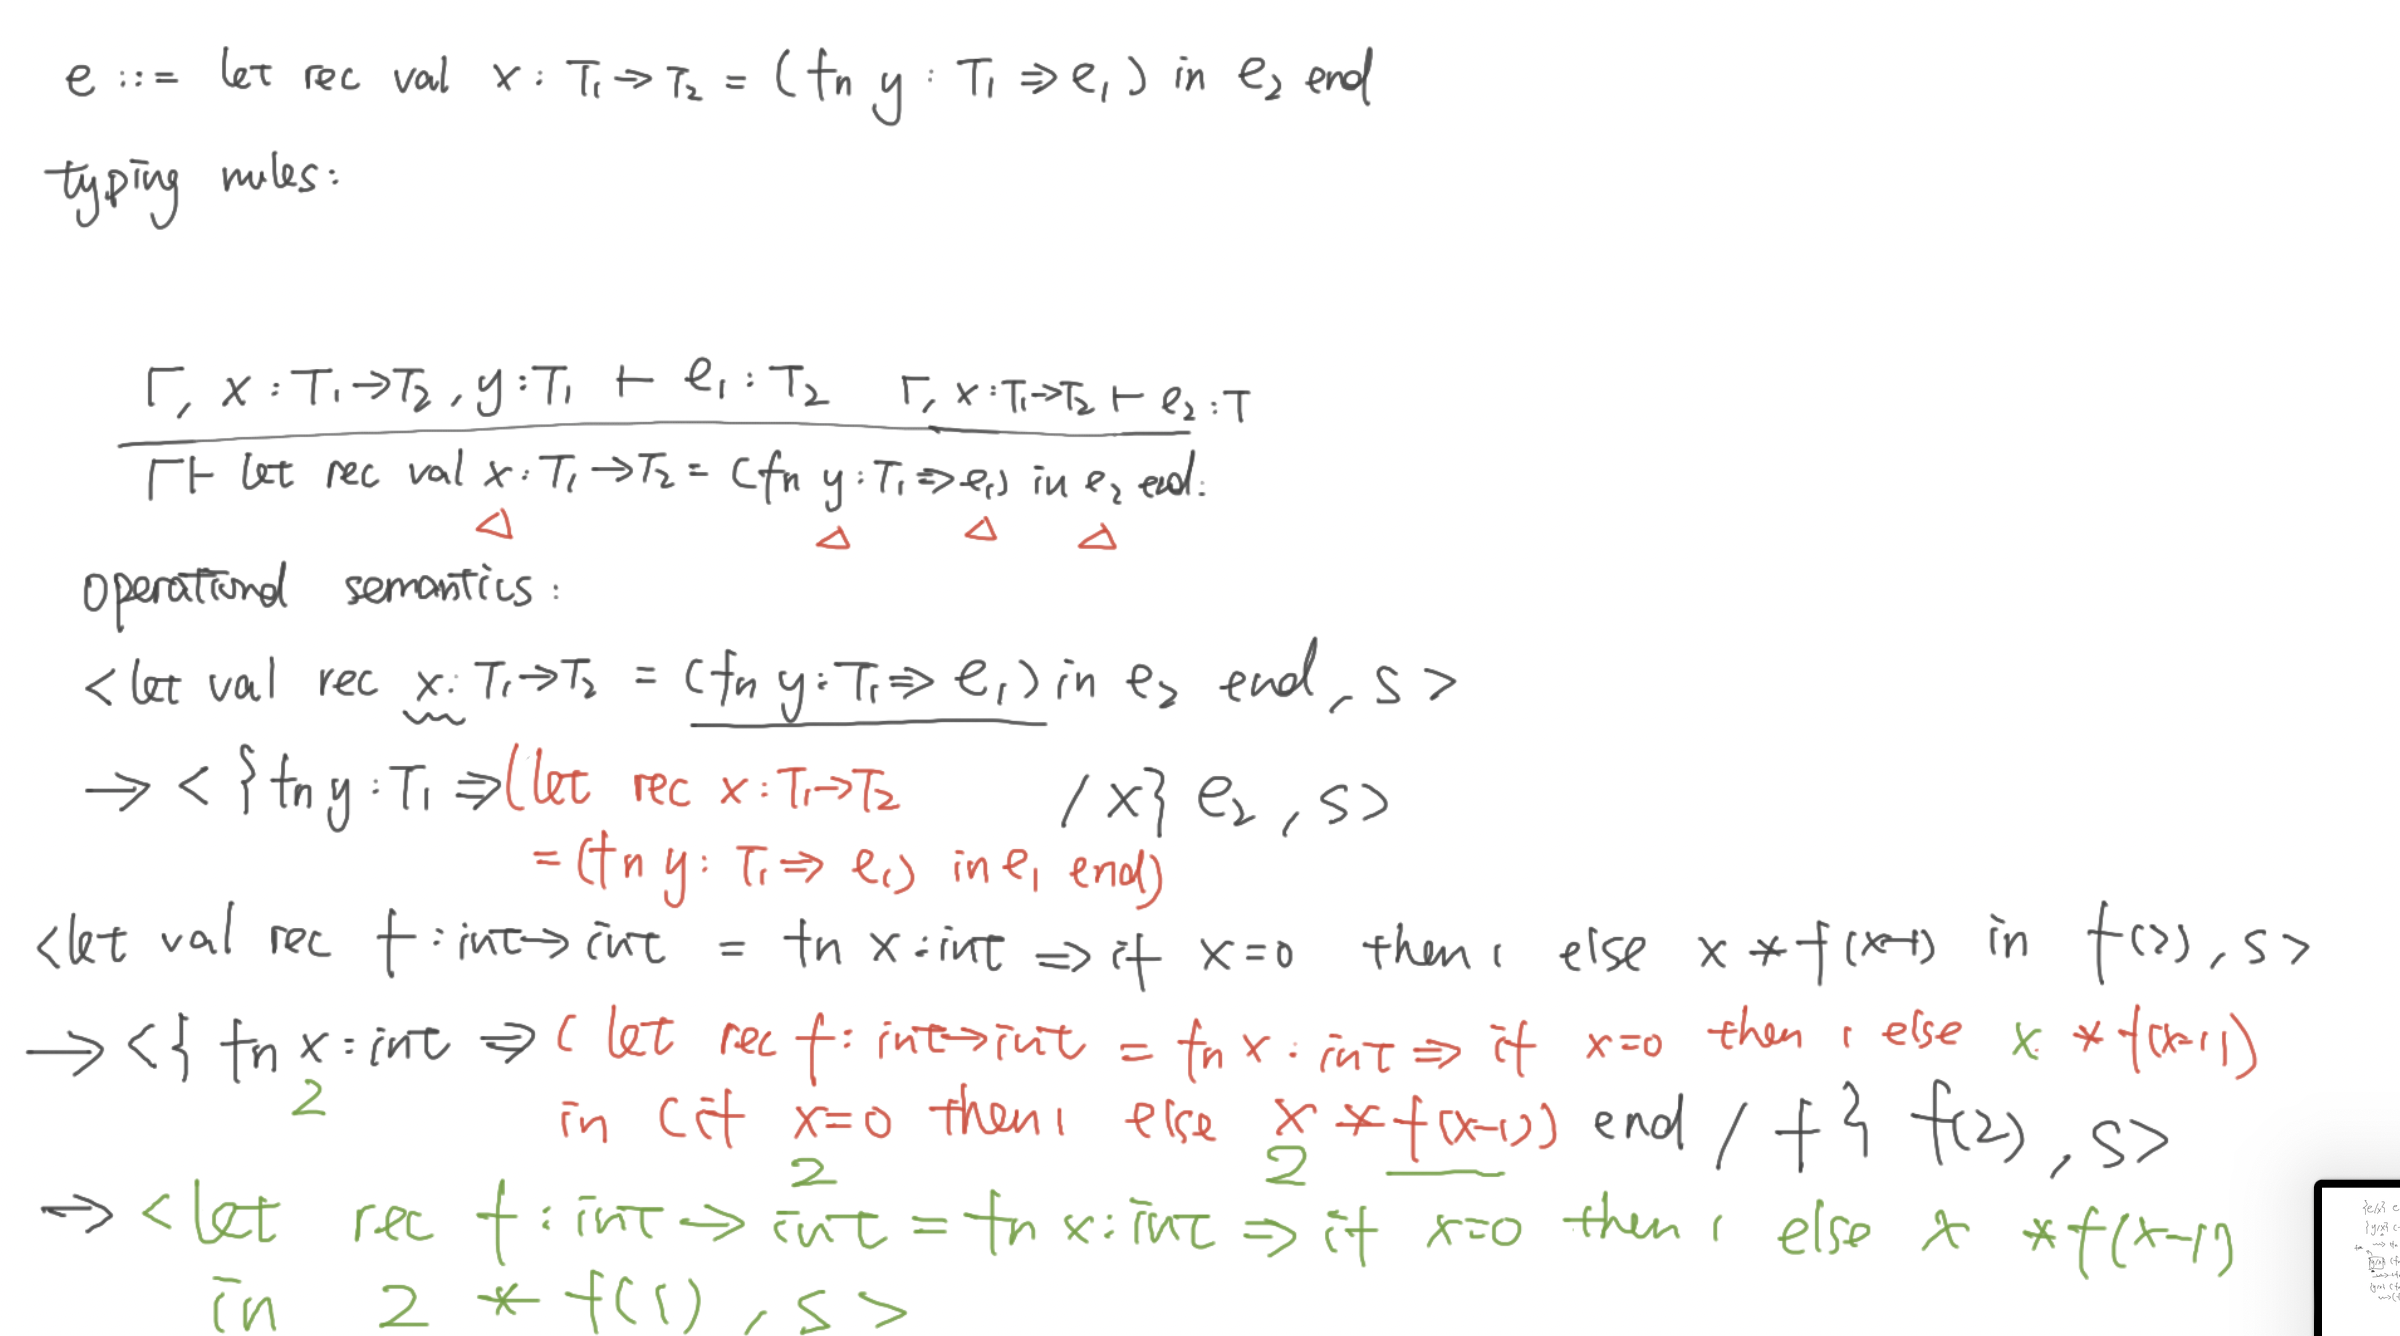 e ::= let rec val x : T₁ → T₂ = (fn y : T₁ ⇒ e₁) in e₂ end
typing rules:
Γ, x : T₁ → T₂, y : T₁ ⊢ e₁ : T₂   Γ, x : T₁ → T₂ ⊢ e₂ : T
Γ ⊢ let rec val x : T₁ → T₂ = (fn y : T₁ ⇒ e₁) in e₂ end :
operational semantics :
< let val rec x : T₁ → T₂ = (fn y : T₁ ⇒ e₁) in e₂ end, s >
→ < { fn y : T₁ ⇒ (let rec x : T₁ → T₂ / x} e₂, s >
= (fn y : T₁ ⇒ e₁) in e₁ end)
< let val rec f : int → int = fn x : int ⇒ if x = 0 then 1 else x * f(x-1) in f(2), s >
→ < { fn x : int ⇒ ( let rec f : int → int = fn x : int ⇒ if x = 0 then 1 else x * f(x-1)
2
in (if x = 0 then 1 else x * f(x-1)) end / f } f(2), s >
2 2
→ < let rec f : int → int = fn x : int ⇒ if x = 0 then 1 else x * f(x-1)
in 2 * f(1), s >